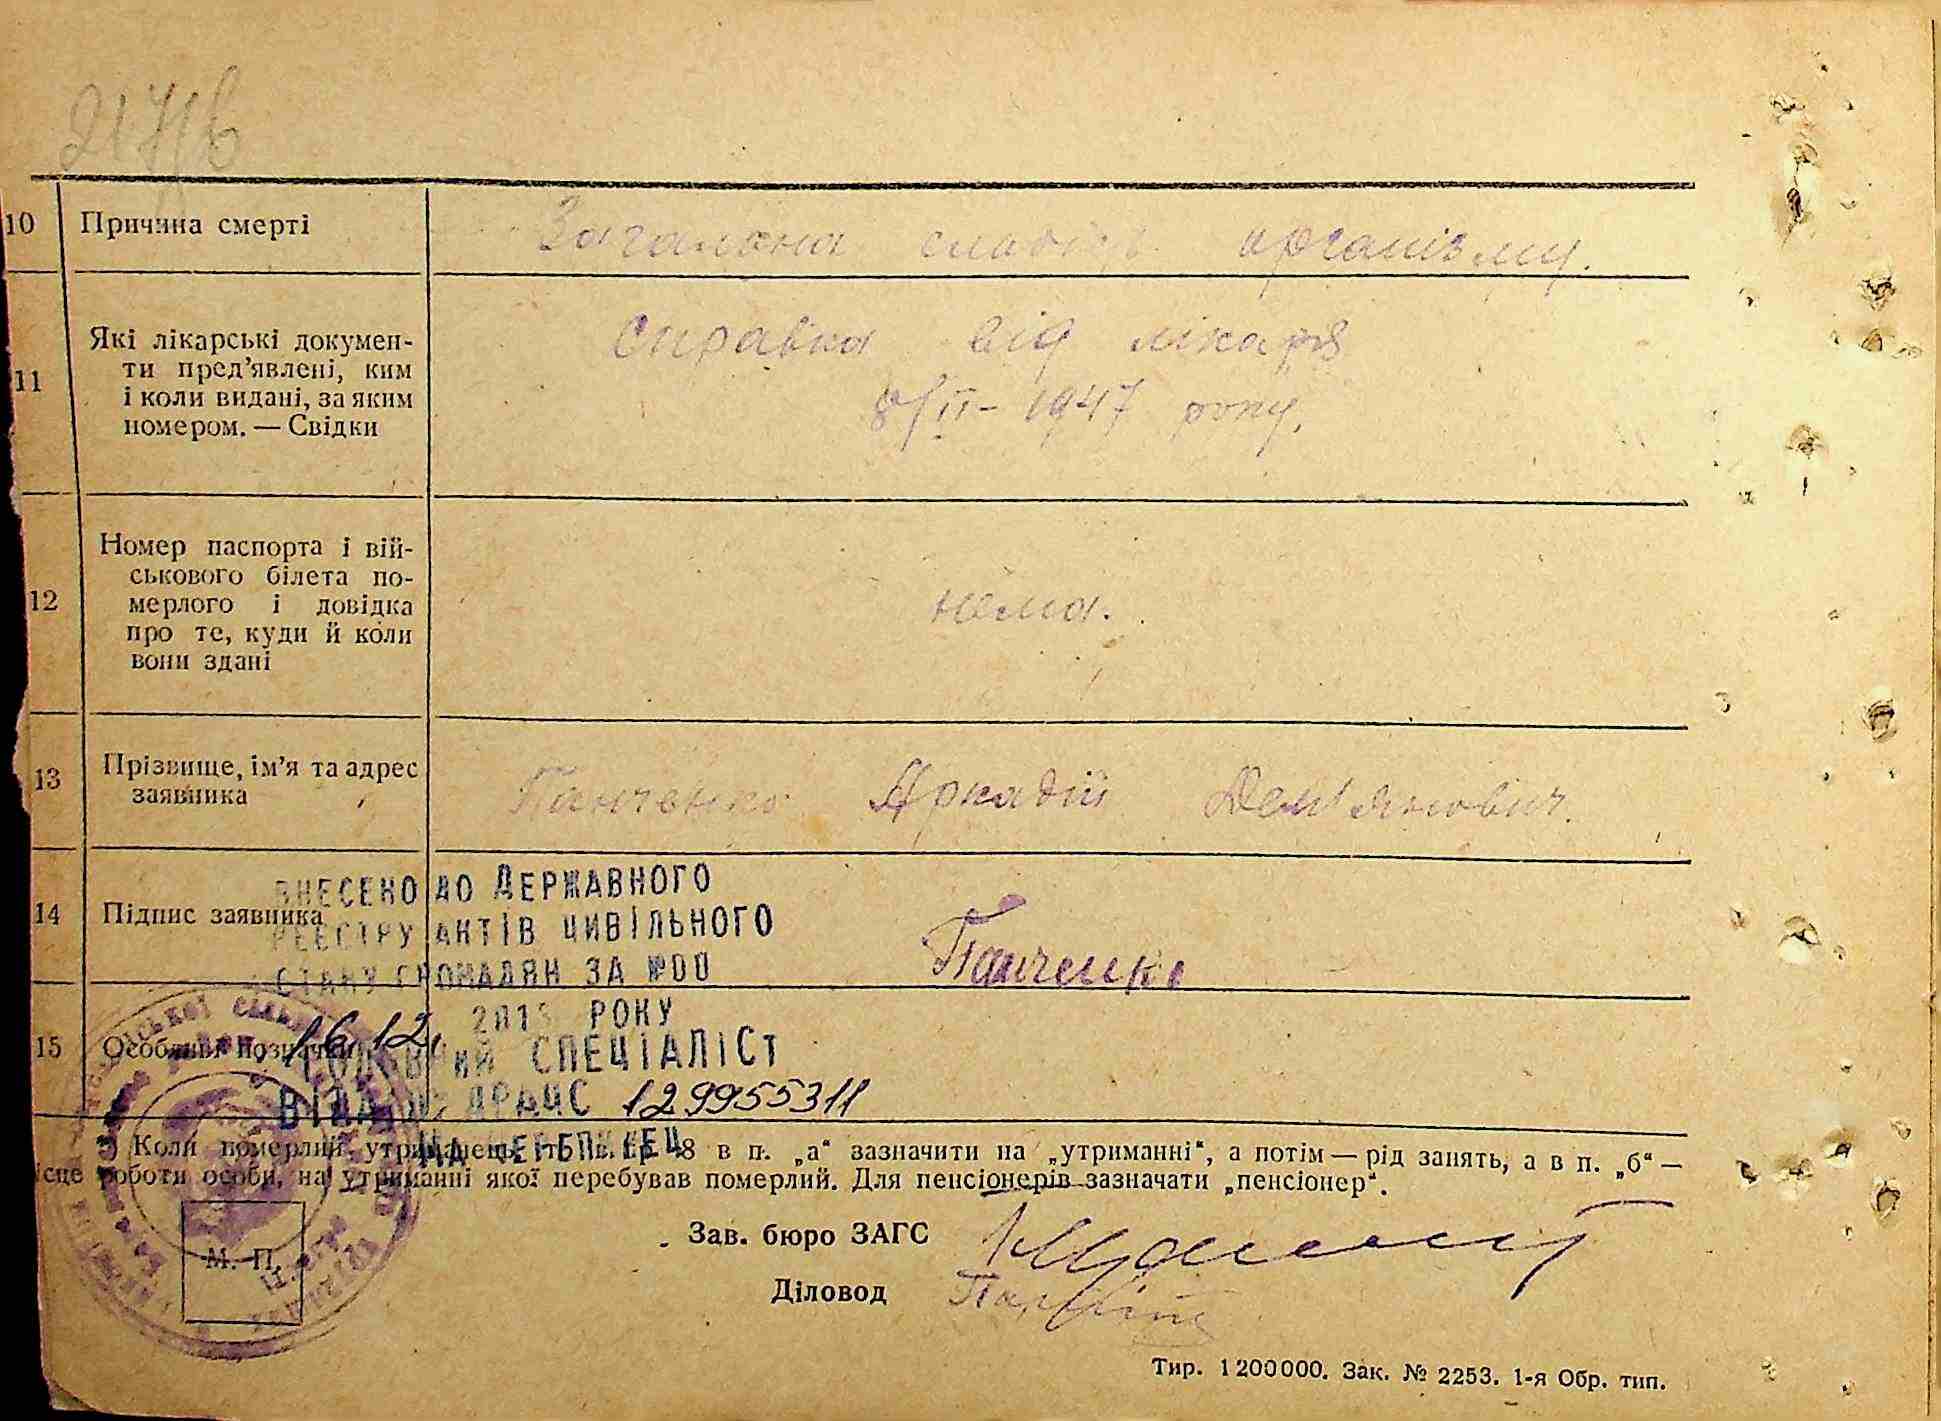 10 Причина смерті Загальна слабість організму.
11 Які лікарські докумен-
ти пред’явлені, ким
і коли видані, за яким
номером. — Свідки
Справка від лікаря
8/II - 1947 року.
12 Номер паспорта і вій-
ськового білета по-
мерлого і довідка
про те, куди й коли
вони здані
нема.
13 Прізвище, ім’я та адрес
заявника
Панченко Аркадій Дем'янович.
14 Підпис заявника
Панченко
ВНЕСЕНО ДО ДЕРЖАВНОГО
РЕЄСТРУ АКТІВ ЦИВІЛЬНОГО
СТАНУ ГРОМАДЯН ЗА №00
РОКУ
15 Особливі позначки
16.12.
ГОЛОВНИЙ СПЕЦІАЛІСТ
ДРАЦС 129955311
*) Коли померлий утриманець, то в гр. 8 в п. „а“ зазначити на „утриманні“, а потім — рід занять, а в п. „б“ —
місце роботи особи, на утриманні якої перебував померлий. Для пенсіонерів зазначати „пенсіонер“.
М. П.
Зав. бюро ЗАГС
Діловод
Тир. 1200000. Зак. № 2253. 1-я Обр. тип.